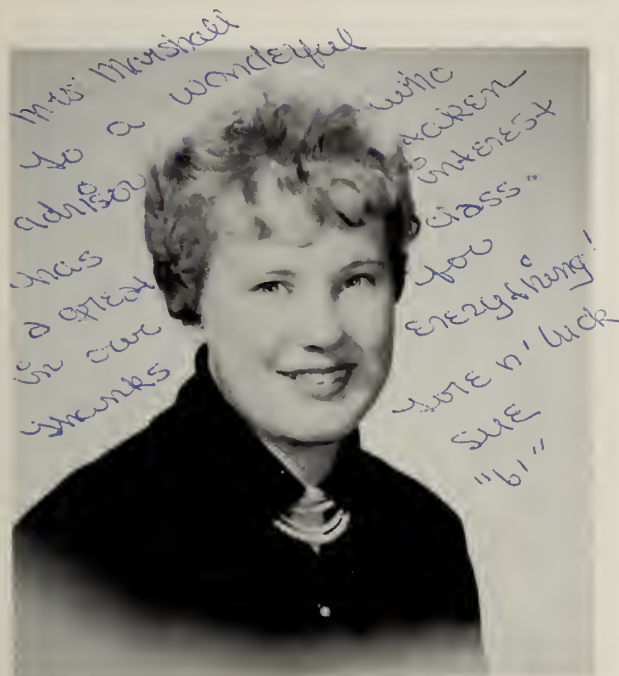 Mrs Marshall
To a wonderful
advisor who
has taken
a great interest
in our class.
Thanks for
everything!
Love n' luck
Sue
"61"